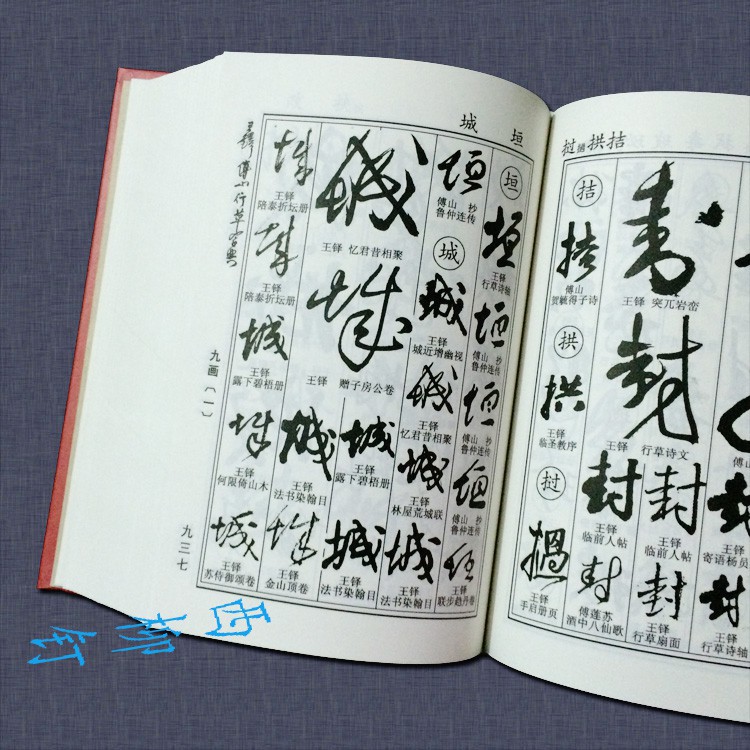 城 垣
垣
垣
王铎
行草诗轴
垣
傅山 抄
鲁仲连传
垣
傅山 抄
鲁仲连传
垣
傅山 抄
鲁仲连传
垣
王铎
联步趋丹卷
垣
傅山 抄
鲁仲连传
城
城
王铎
城近增幽视
城
王铎
忆君昔相聚
城
王铎
林屋荒城联
城
王铎
法书染翰目
城
王铎 忆君昔相聚
城
王铎 赠子房公卷
城
王铎
露下碧梧册
城
王铎
法书染翰目
城
王铎
法书染翰目
城
王铎
金山顶卷
城
王铎
陪泰折坛册
城
王铎
陪泰折坛册
城
王铎
露下碧梧册
城
王铎
何限倚山木
城
王铎
苏侍御颂卷
王铎 傅山行草字典
九画〔一〕
九三七
拱拮
拮
拮
傅山
贺毓得子诗
拱
拱
王铎
临圣教序
挝
王铎
手启册页
封
王铎 突兀岩峦
封
王铎 行草诗文
封
王铎
临前人帖
封
王铎
临前人帖
封
傅莲苏
酒中八仙歌
封
王铎
行草扇面
封
王铎
寄语杨员
封
王铎
行草诗轴
西柳钉